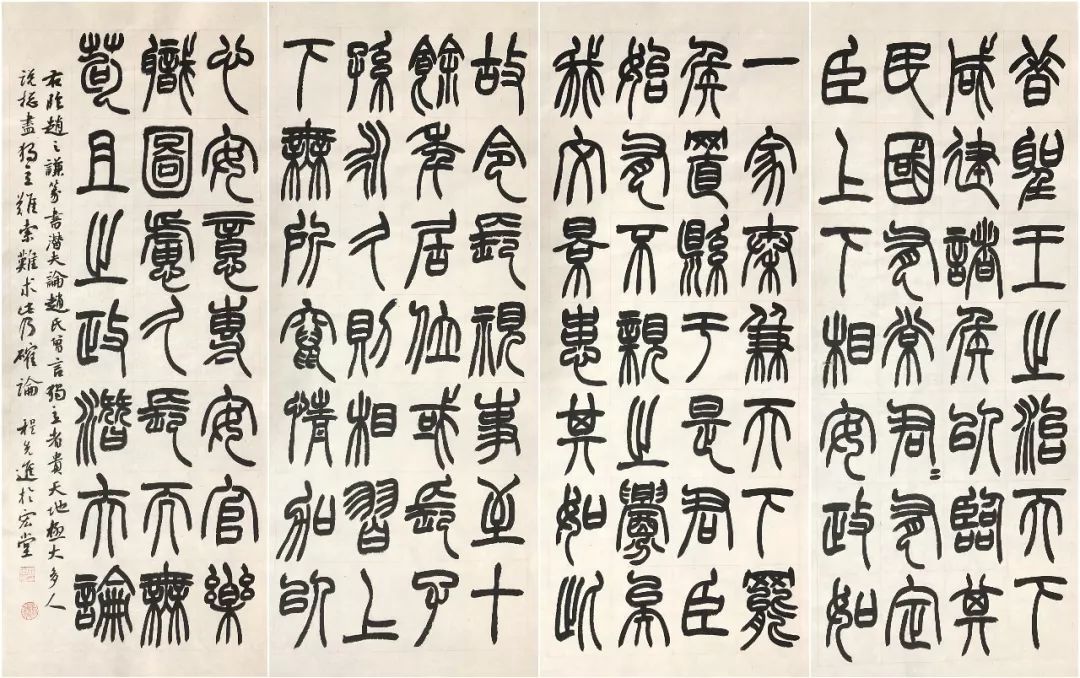 昔聖王之治天下
咸建諸侯以臨其
民國有常君〻有定
臣上下相安政如
一家秦兼天下罷
侯置縣于是君臣
始有不親之釁矣
我文景患其如此
故令長視事至十
餘年居位或長子
孫永久則相習上
下無所竄情加以
心安意專安官樂
職圖慮久長而無
苟且之政潛夫論
右臨趙之謙篆書潛夫論趙氏曾言獨立者貴天地極大多人
說總盡獨立難索難求此乃確論 程先進於宏堂